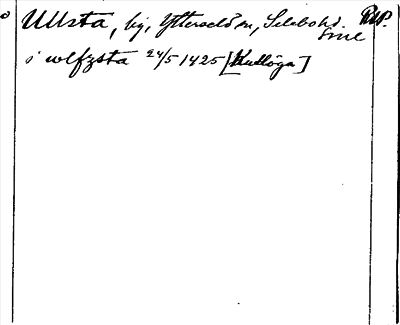 Ullsta, by, Ytterselö sn, Selebo hd. RAP.
Srml
i wlfzsta 24/5 1425 [Kudlöga]